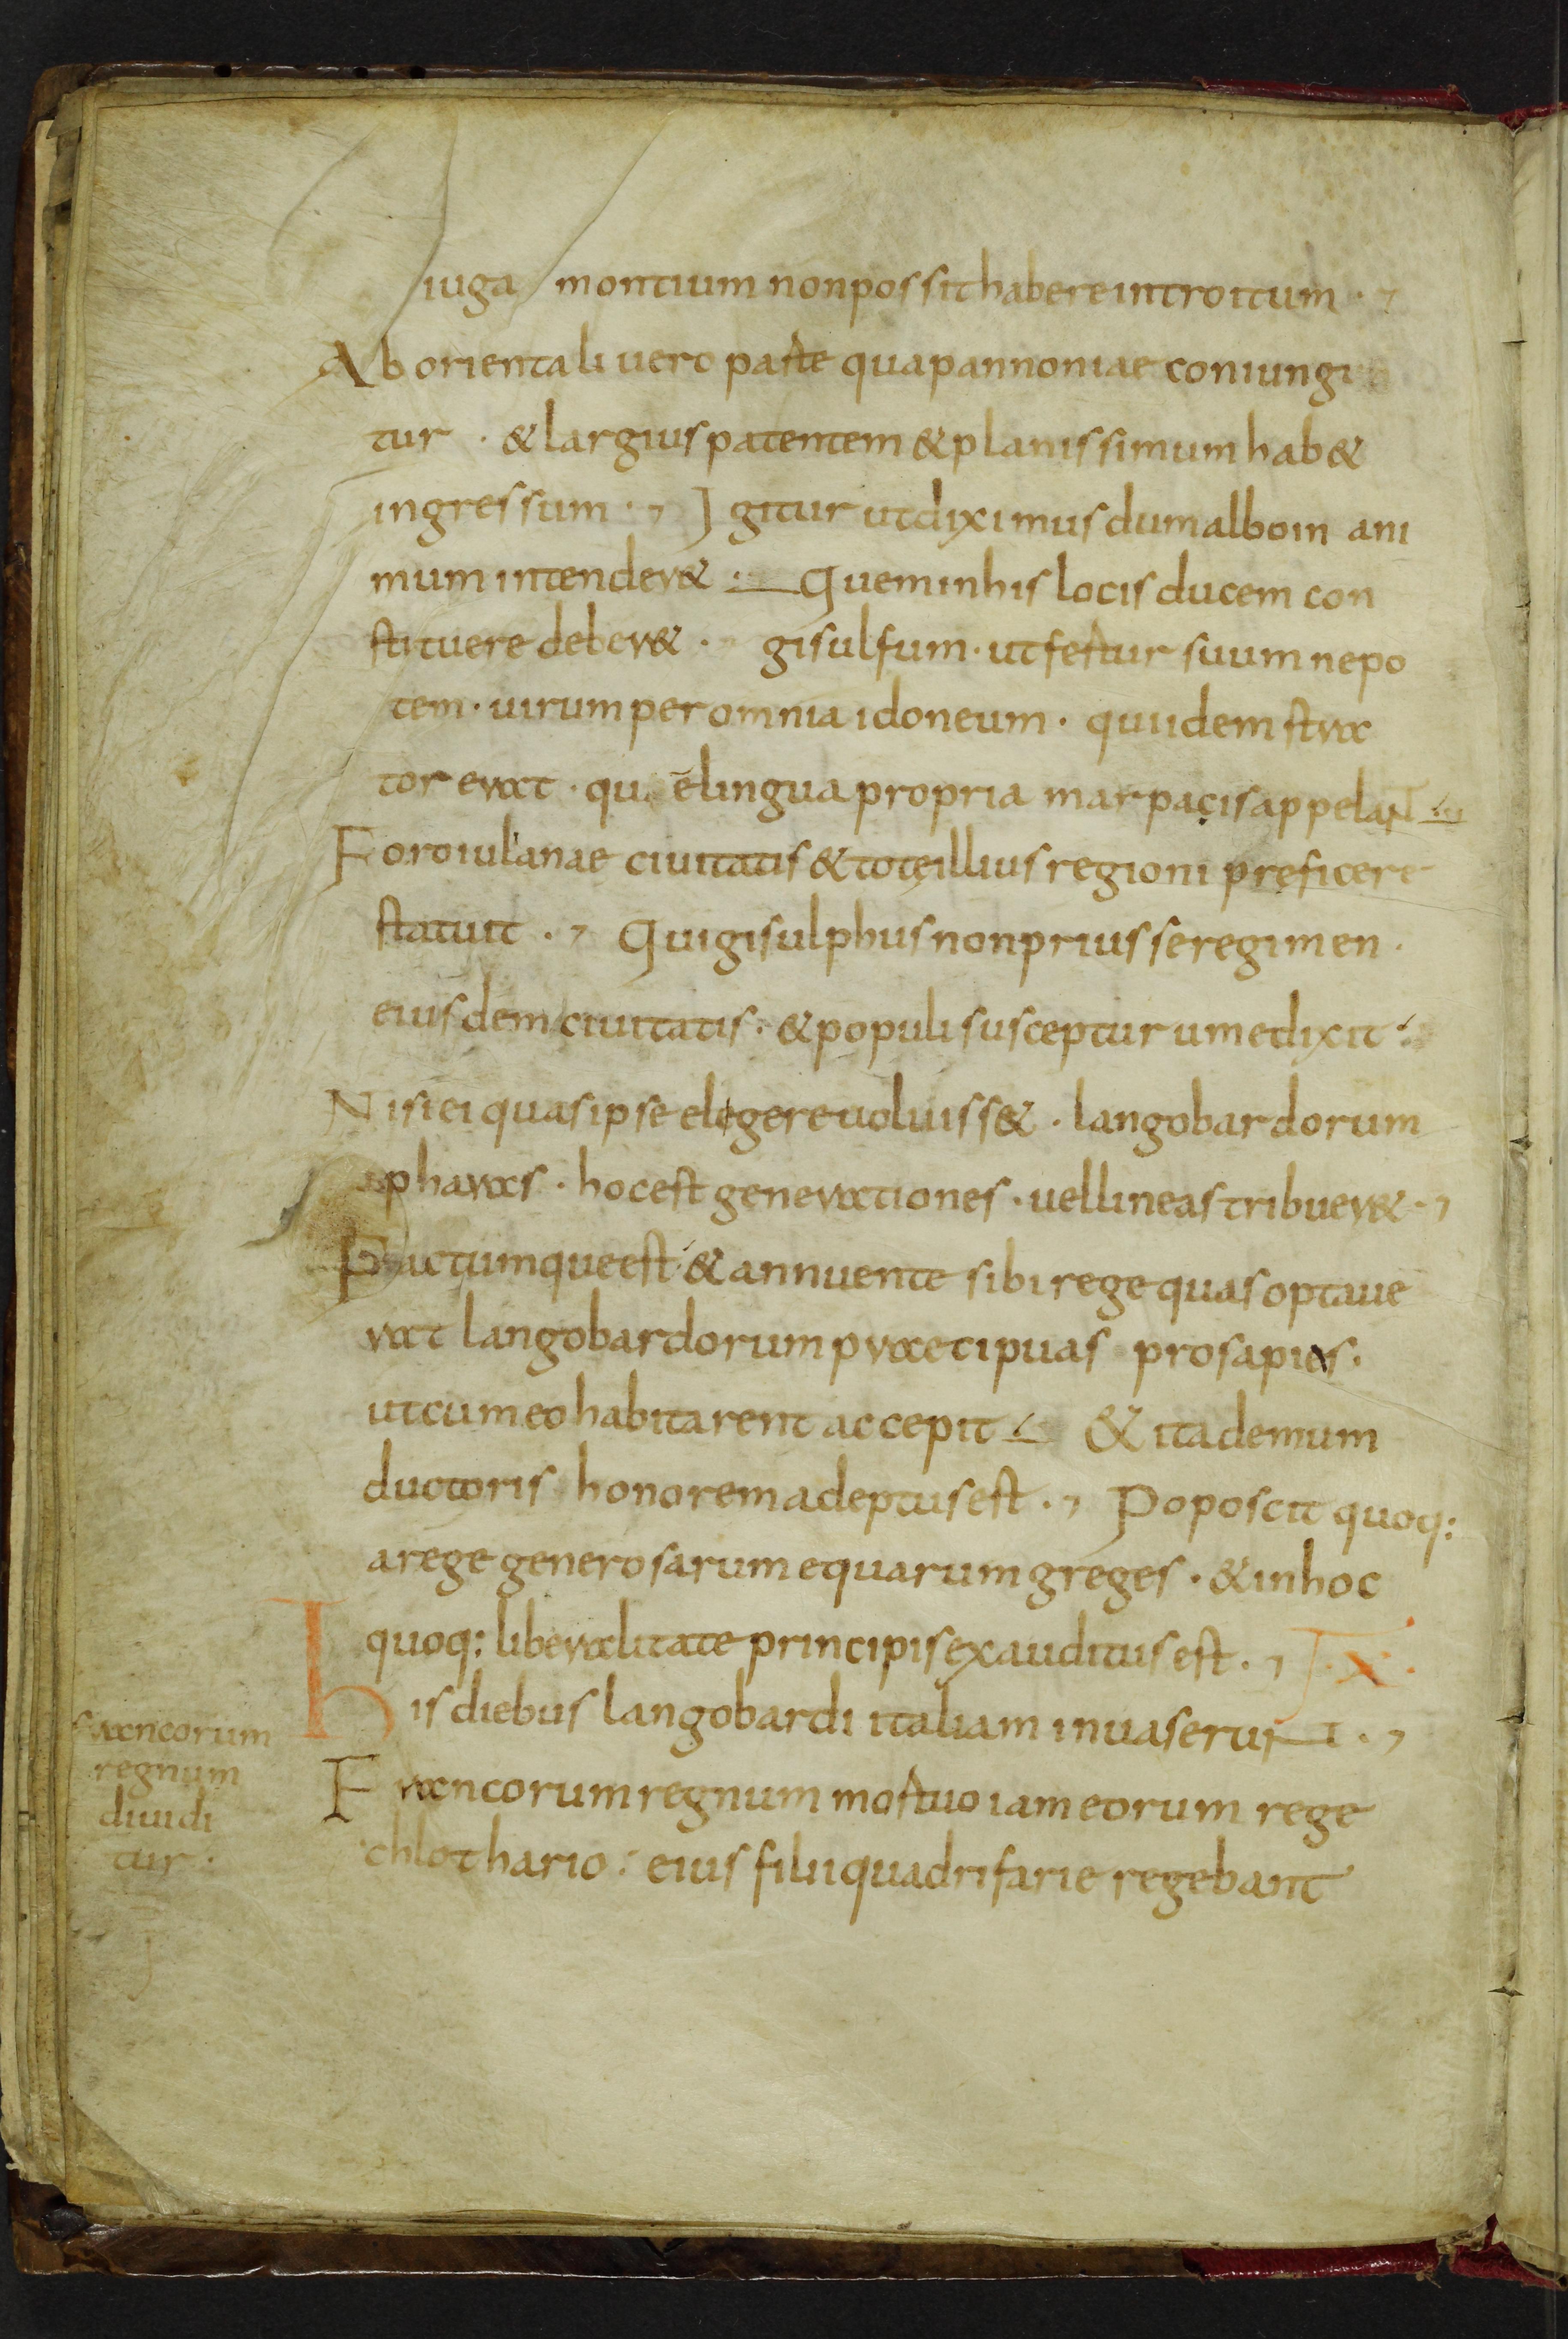 iuga montium non possit habere introitum .,
Ab orientali uero parte qua pannoniae coniungi
tur . & largius patentem & planissimum hab&
ingressum ., Igitur ut diximus dum alboin ani
mum intender& . Quem in his locis ducem con
stituere deber& . gisulfum . ut fertur suum nepo
tem . uirum per omnia idoneum . qui idem stra
tor erat . qu ē lingua propria marpacis appelant
Foroiulanae ciuitatis & totę illius regioni preficere
statuit ., Qui gisulphus non prius se regimen .
eiusdem ciuitatis . & populi suscepturum edixit :
Nisi ei quas ipse elegere uoluiss& . langobardorum
pharas . hoc est generationes . uel lineas tribuer& .,
Factumque est & annuente sibi rege quas optaue
rat langobardorum praecipuas prosapias .
ut cum eo habitarent accepit & ita demum
ductoris honorem adeptus est ., Poposcit quoq:
a rege generosarum equarum greges . & in hoc
quoq: liberalitate principis exauditus est ., .x.
his diebus langobardi italiam inuaserunt .,
Francorum regnum mortuo iam eorum rege
chlothario : eius filii quadrifarie regebant
francorum
regnum
diuidi
tur :